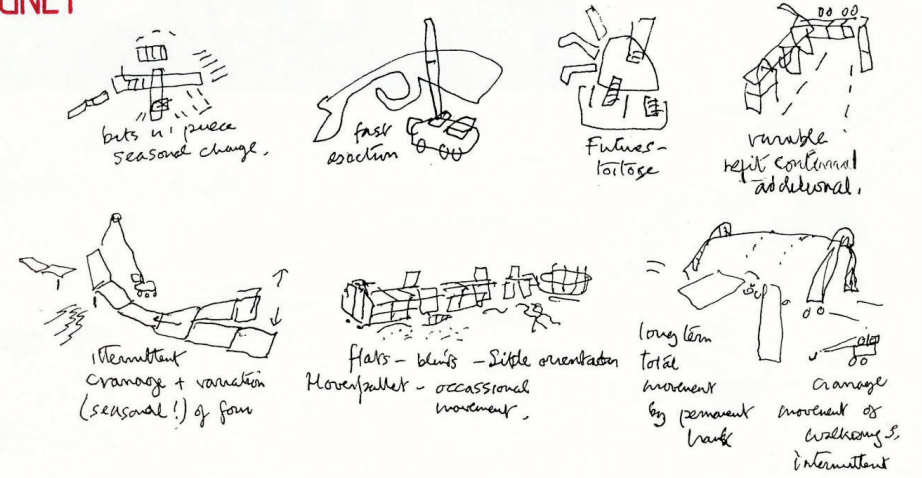 bits n' piece
seasonal change.
fast
Futures-
tortoise
variable
refit continual
additional.
intermittent
cranage + variation
(seasonal!) of form
flats - blinds -
Hoverpallet - occassional
movement.
long term
total
movement
by permanent
cranage
movement of
intermittent